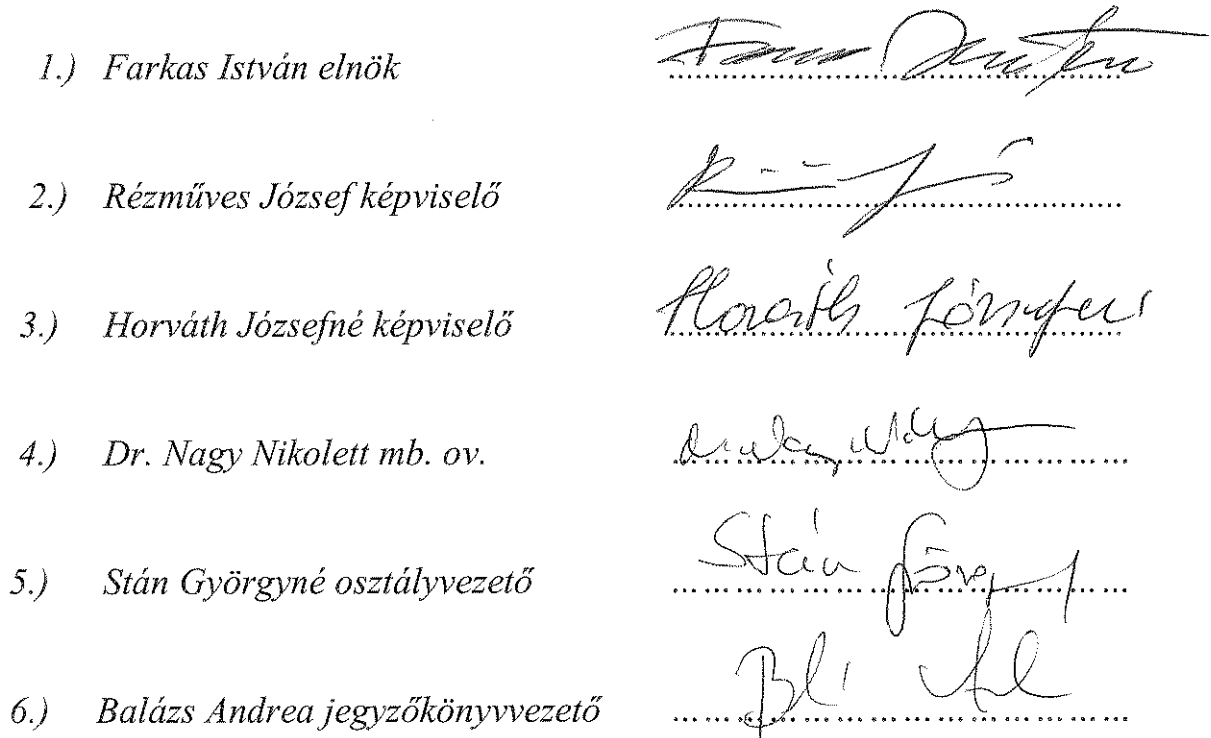 1.) Farkas István elnök
2.) Rézműves József képviselő
3.) Horváth Józsefné képviselő Horváth
4.) Dr. Nagy Nikolett mb. ov.
5.) Stán Györgyné osztályvezető Stán
6.) Balázs Andrea jegyzőkönyvvezető